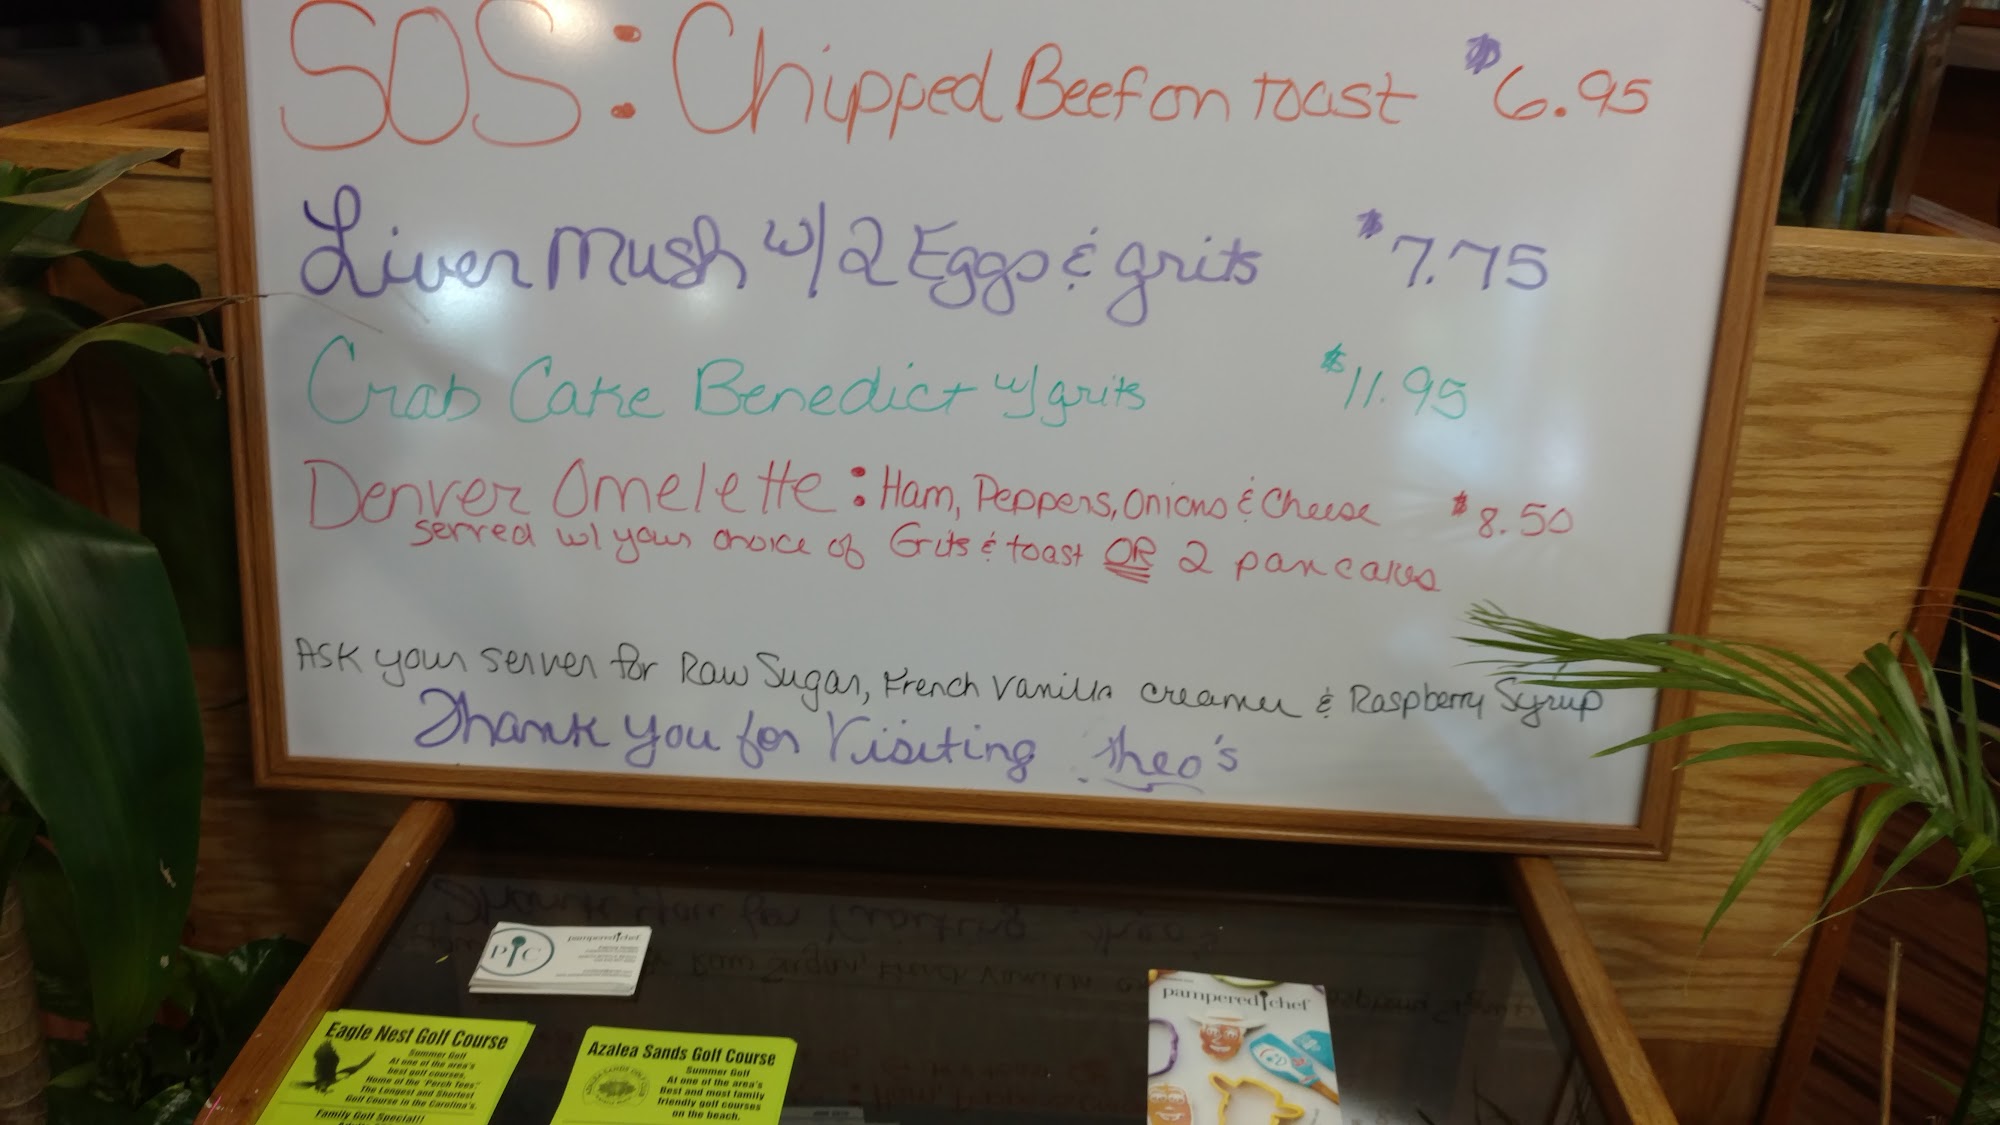 SOS: Chipped Beef on toast $6.95
Liver Mush w/ 2 Eggs & grits $7.75
Crab Cake Benedict w/ grits $11.95
Denver Omelette: Ham, Peppers, Onions & Cheese $8.50
served w/ your choice of Grits & toast OR 2 pancakes
Ask your server for Raw Sugar, French Vanilla creamer & Raspberry Syrup
Thank you for Visiting Theo's
PC
pampered chef
Eagle Nest Golf Course
Summer Golf
At one of the area's
best golf courses.
Home of the "Perch Tees"
The Longest and Shortest
Golf Course in the Carolina's.
Family Golf Special!!
Azalea Sands Golf Course
Summer Golf
At one of the area's
Best and most family
friendly golf courses
on the beach.
pampered chef